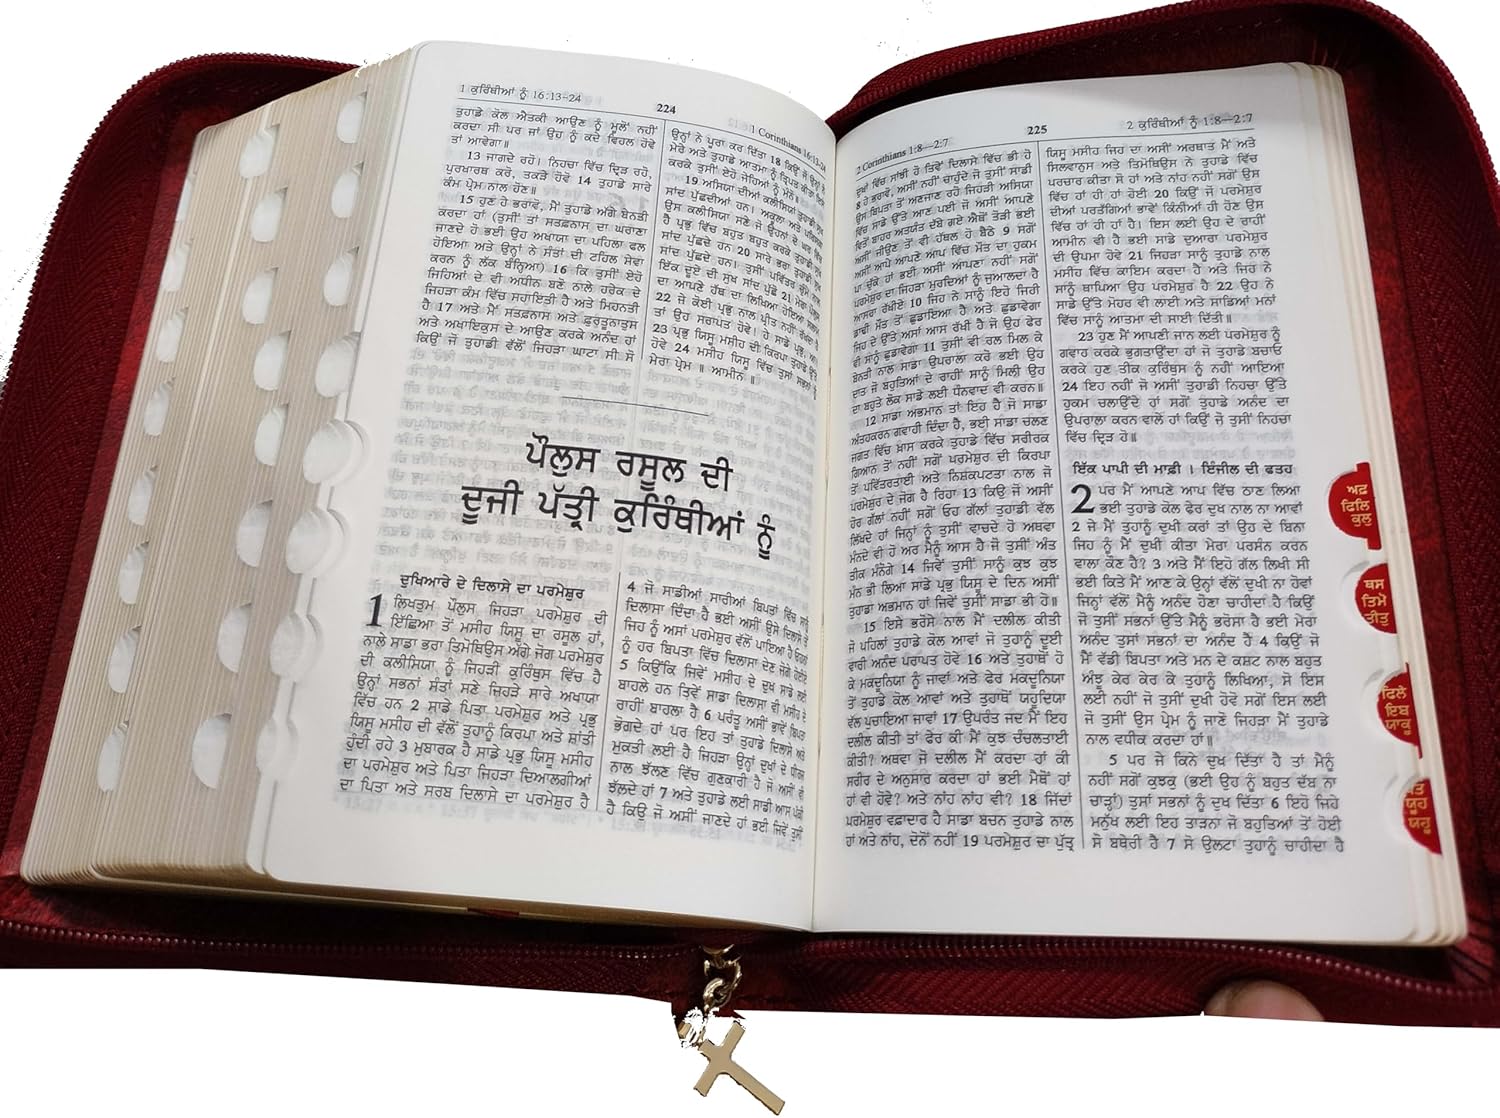 1 ਕੁਰਿੰਥੀਆਂ ਨੂੰ 16:13-24
224
1 Corinthians 16:13-24
ਤੁਹਾਡੇ ਕੋਲ ਐਤਕੀ ਆਉਣ ਨੂੰ ਮੂਲੋਂ ਨਹੀਂ
ਕਰਦਾ ਸੀ ਪਰ ਜਾਂ ਉਹ ਨੂੰ ਕਦੇ ਵਿਹਲ ਹੋਵੇ
ਤਾਂ ਆਵੇਗਾ॥
13 ਜਾਗਦੇ ਰਹੋ। ਨਿਹਚਾ ਵਿੱਚ ਦ੍ਰਿੜ ਰਹੋ,
ਪੁਰਖਾਰਥ ਕਰੋ, ਤਕੜੇ ਹੋਵੋ 14 ਤੁਹਾਡੇ ਸਾਰੇ
ਕੰਮ ਪ੍ਰੇਮ ਨਾਲ ਹੋਣ॥
15 ਹੁਣ ਹੇ ਭਰਾਵੋ, ਮੈਂ ਤੁਹਾਡੇ ਅੱਗੇ ਬੇਨਤੀ
ਕਰਦਾ ਹਾਂ (ਤੁਸੀਂ ਤਾਂ ਸਤਫ਼ਨਾਸ ਦਾ ਘਰਾਣਾ
ਜਾਣਦੇ ਹੋ ਭਈ ਉਹ ਅਖਾਯਾ ਦਾ ਪਹਿਲਾ ਫਲ
ਹੋਇਆ ਅਤੇ ਉਨ੍ਹਾਂ ਨੇ ਸੰਤਾਂ ਦੀ ਟਹਿਲ ਸੇਵਾ
ਕਰਨ ਨੂੰ ਲੱਕ ਬੰਨ੍ਹਿਆ) 16 ਕਿ ਤੁਸੀਂ ਏਹੋ
ਜਿਹਿਆਂ ਦੇ ਵੀ ਅਧੀਨ ਬਣੋ ਨਾਲੇ ਹਰੇਕ ਦੇ
ਜਿਹੜਾ ਕੰਮ ਵਿੱਚ ਸਹਾਇਤੀ ਹੈ ਅਤੇ ਮਿਹਨਤੀ
ਹੈ 17 ਅਤੇ ਮੈਂ ਸਤਫ਼ਨਾਸ ਅਤੇ ਫ਼ੁਰਤੂਨਾਤੁਸ
ਅਤੇ ਅਖਾਇਕੁਸ ਦੇ ਆਉਣ ਕਰਕੇ ਅਨੰਦ ਹਾਂ
ਕਿਉਂ ਜੋ ਤੁਹਾਡੀ ਵੱਲੋਂ ਜਿਹੜਾ ਘਾਟਾ ਸੀ ਸੋ
ਉਨ੍ਹਾਂ ਨੇ ਪੂਰਾ ਕਰ ਦਿੱਤਾ 18 ਕਿਉਂ ਜੋ ਉਨ੍ਹਾਂ ਨੇ
ਮੇਰੇ ਅਤੇ ਤੁਹਾਡੇ ਆਤਮਾ ਨੂੰ ਤ੍ਰਿਪਤ ਕੀਤਾ ਇਸ
ਕਰਕੇ ਤੁਸੀਂ ਏਹੋ ਜੇਹਿਆਂ ਨੂੰ ਮੰਨੋ॥
19 ਅਸਿਯਾ ਦੀਆਂ ਕਲੀਸਿਯਾਂ ਤੁਹਾਡੀ ਸੁਖ
ਸਾਂਦ ਪੁੱਛਦੀਆਂ ਹਨ। ਅਕੂਲਾ ਅਤੇ
ਉਸ ਕਲੀਸਿਯਾ ਸਣੇ ਜੋ ਉਹਨਾਂ ਦੇ ਘਰ ਵਿੱਚ
ਹੈ ਪ੍ਰਭੁ ਵਿੱਚ ਬਹੁਤ ਬਹੁਤ ਕਰਕੇ ਤੁਹਾਡੀ ਸੁਖ
ਸਾਂਦ ਪੁੱਛਦੇ ਹਨ 20 ਸਾਰੇ ਭਰਾ ਤੁਹਾਡੀ ਸੁਖ
ਸਾਂਦ ਪੁੱਛਦੇ ਹਨ। ਤੁਸੀਂ ਪਵਿੱਤਰ ਚੁੰਮੇ ਨਾਲ
ਇੱਕ ਦੂਏ ਦੀ ਸੁੱਖ ਸਾਂਦ ਪੁੱਛੋ 21 ਮੇਰਾ ਪੌਲੁਸ
ਦਾ ਆਪਣੇ ਹੱਥ ਦਾ ਲਿਖਿਆ ਹੋਇਆ ਸਲਾਮ
22 ਜੇ ਕੋਈ ਪ੍ਰਭੁ ਨਾਲ ਪ੍ਰੀਤ ਨਹੀਂ ਰੱਖਦਾ ਹੈ
ਤਾਂ ਉਹ ਸਰਾਪਤ ਹੋਵੇ। ਹੇ ਸਾਡੇ ਪ੍ਰਭੁ, ਆ॥
23 ਪ੍ਰਭੁ ਯਿਸੂ ਮਸੀਹ ਦੀ ਕਿਰਪਾ ਤੁਹਾਡੇ ਉੱਤੇ
ਹੋਵੇ 24 ਮਸੀਹ ਯਿਸੂ ਵਿੱਚ ਤੁਸਾਂ ਸਭਨਾਂ ਨੂੰ
ਮੇਰਾ ਪ੍ਰੇਮ ॥ ਆਮੀਨ ॥
ਪੌਲੁਸ ਰਸੂਲ ਦੀ
ਦੂਜੀ ਪੱਤ੍ਰੀ ਕੁਰਿੰਥੀਆਂ ਨੂੰ
ਦੁਖਿਆਰੇ ਦੇ ਦਿਲਾਸੇ ਦਾ ਪਰਮੇਸ਼ੁਰ
1 ਲਿਖਤੁਮ ਪੌਲੁਸ, ਜਿਹੜਾ ਪਰਮੇਸ਼ੁਰ ਦੀ
ਇੱਛਿਆ ਤੋਂ ਮਸੀਹ ਯਿਸੂ ਦਾ ਰਸੂਲ ਹਾਂ,
ਨਾਲੇ ਸਾਡਾ ਭਰਾ ਤਿਮੋਥਿਉਸ ਅੱਗੇ ਜੋਗ ਪਰਮੇਸ਼ੁਰ
ਦੀ ਕਲੀਸਿਯਾ ਨੂੰ ਜਿਹੜੀ ਕੁਰਿੰਥੁਸ ਵਿੱਚ ਹੈ
ਉਨ੍ਹਾਂ ਸਭਨਾਂ ਸੰਤਾਂ ਸਣੇ ਜਿਹੜੇ ਸਾਰੇ ਅਖਾਯਾ
ਵਿੱਚ ਹਨ 2 ਸਾਡੇ ਪਿਤਾ ਪਰਮੇਸ਼ੁਰ ਅਤੇ ਪ੍ਰਭੁ
ਯਿਸੂ ਮਸੀਹ ਦੀ ਵੱਲੋਂ ਤੁਹਾਨੂੰ ਕਿਰਪਾ ਅਤੇ ਸ਼ਾਂਤੀ
ਹੁੰਦੀ ਰਹੇ 3 ਮੁਬਾਰਕ ਹੈ ਸਾਡੇ ਪ੍ਰਭੁ ਯਿਸੂ ਮਸੀਹ
ਦਾ ਪਰਮੇਸ਼ੁਰ ਅਤੇ ਪਿਤਾ ਜਿਹੜਾ ਦਿਆਲਗੀਆਂ
ਦਾ ਪਿਤਾ ਅਤੇ ਸਰਬ ਦਿਲਾਸੇ ਦਾ ਪਰਮੇਸ਼ੁਰ ਹੈ
4 ਜੋ ਸਾਡੀਆਂ ਸਾਰੀਆਂ ਬਿਪਤਾਂ ਵਿੱਚ ਸਾਨੂੰ
ਦਿਲਾਸਾ ਦਿੰਦਾ ਹੈ ਭਈ ਅਸੀਂ ਉਸੇ ਦਿਲਾਸੇ ਤੋਂ
ਜਿਹ ਨੂੰ ਅਸਾਂ ਪਰਮੇਸ਼ੁਰ ਵੱਲੋਂ ਪਾਇਆ ਹੈ ਓਹਨਾਂ
ਨੂੰ ਹਰ ਬਿਪਤਾ ਵਿੱਚ ਦਿਲਾਸਾ ਦੇਣ ਜੋਗੇ ਹੋਈਏ
5 ਕਿਉਂਕਿ ਜਿਵੇਂ ਮਸੀਹ ਦੇ ਦੁਖ ਸਾਡੇ ਲਈ
ਬਾਹਲੇ ਹਨ ਤਿਵੇਂ ਸਾਡਾ ਦਿਲਾਸਾ ਵੀ ਮਸੀਹ ਦੇ
ਰਾਹੀਂ ਬਾਹਲਾ ਹੈ 6 ਪਰੰਤੂ ਅਸੀਂ ਭਾਵੇਂ ਬਿਪਤਾ
ਭੋਗਦੇ ਹਾਂ ਪਰ ਇਹ ਤਾਂ ਤੁਹਾਡੇ ਦਿਲਾਸੇ ਅਤੇ
ਮੁਕਤੀ ਲਈ ਹੈ ਜਿਹੜਾ ਉਨ੍ਹਾਂ ਦੁਖਾਂ ਦੇ ਧੀਰਜ
ਨਾਲ ਝੱਲਣ ਵਿੱਚ ਗੁਣਕਾਰੀ ਹੈ ਜੋ ਅਸੀਂ ਵੀ
ਝੱਲਦੇ ਹਾਂ 7 ਅਤੇ ਤੁਹਾਡੇ ਲਈ ਸਾਡੀ ਆਸ ਪੱਕੀ
ਹੈ ਕਿਉਂ ਜੋ ਅਸੀਂ ਜਾਣਦੇ ਹਾਂ ਭਈ ਜਿਵੇਂ ਤੁਸੀਂ
2 Corinthians 1:8—2:7
225
2 ਕੁਰਿੰਥੀਆਂ ਨੂੰ 1:8-2:7
ਦੁਖਾਂ ਵਿੱਚ ਸਾਂਝੀ ਹੋ ਤਿਵੇਂ ਦਿਲਾਸੇ ਵਿੱਚ ਭੀ ਹੋ
8 ਹੇ ਭਰਾਵੋ, ਅਸੀਂ ਨਹੀਂ ਚਾਹੁੰਦੇ ਜੋ ਤੁਸੀਂ ਸਾਡੀ
ਉਸ ਬਿਪਤਾ ਤੋਂ ਅਣਜਾਣ ਰਹੋ ਜਿਹੜੀ ਅਸਿਯਾ
ਵਿੱਚ ਸਾਡੇ ਉੱਤੇ ਆਣ ਪਈ ਜੋ ਅਸੀਂ ਆਪਣੀ
ਵਿਤੋਂ ਬਾਹਰ ਅਤਯੰਤ ਦੱਬੇ ਗਏ ਐਥੋਂ ਤੋੜੀ ਭਈ
ਅਸੀਂ ਜੀਉਣ ਤੋਂ ਵੀ ਹੱਥਲ ਹੋ ਬੈਠੇ 9 ਸਗੋਂ
ਅਸੀਂ ਆਪੇ ਆਪਣੇ ਆਪ ਵਿੱਚ ਮੌਤ ਦਾ ਹੁਕਮ
ਪਾ ਚੁੱਕੇ ਹਾਂ ਭਈ ਅਸੀਂ ਆਪਣਾ ਨਹੀਂ ਸਗੋਂ
ਪਰਮੇਸ਼ੁਰ ਦਾ ਜਿਹੜਾ ਮੁਰਦਿਆਂ ਨੂੰ ਜੁਆਲਦਾ ਹੈ
ਆਸਰਾ ਰੱਖੀਏ 10 ਜਿਹ ਨੇ ਸਾਨੂੰ ਇਹੋ ਜਿਹੀ
ਡਾਢੀ ਮੌਤ ਤੋਂ ਛੁਡਾਇਆ ਹੈ ਅਤੇ ਛੁਡਾਵੇਗਾ
ਜਿਹ ਦੇ ਉੱਤੇ ਅਸਾਂ ਆਸ ਰੱਖੀ ਹੈ ਜੋ ਉਹ ਫੇਰ
ਵੀ ਸਾਨੂੰ ਛੁਡਾਵੇਗਾ 11 ਤੁਸੀਂ ਵੀ ਰਲ ਮਿਲ ਕੇ
ਬੇਨਤੀ ਨਾਲ ਸਾਡਾ ਉਪਰਾਲਾ ਕਰੋ ਭਈ ਉਹ
ਦਾਤ ਜੋ ਬਹੁਤਿਆਂ ਦੇ ਰਾਹੀਂ ਸਾਨੂੰ ਮਿਲੀ ਉਹ
ਦਾ ਬਹੁਤੇ ਲੋਕ ਸਾਡੇ ਲਈ ਧੰਨਵਾਦ ਵੀ ਕਰਨ॥
12 ਸਾਡਾ ਅਭਮਾਨ ਤਾਂ ਇਹ ਹੈ ਜੋ ਸਾਡਾ
ਅੰਤਹਕਰਨ ਗਵਾਹੀ ਦਿੰਦਾ ਹੈ, ਭਈ ਸਾਡਾ ਚਲਣ
ਜਗਤ ਵਿੱਚ ਖ਼ਾਸ ਕਰਕੇ ਤੁਹਾਡੇ ਵਿੱਚ ਸਰੀਰਕ
ਗਿਆਨ ਤੋਂ ਨਹੀਂ ਸਗੋਂ ਪਰਮੇਸ਼ੁਰ ਦੀ ਕਿਰਪਾ
ਤੋਂ ਪਵਿੱਤਰਤਾਈ ਅਤੇ ਨਿਸ਼ਕਪਟਤਾ ਨਾਲ ਜੋ
ਪਰਮੇਸ਼ੁਰ ਦੇ ਜੋਗ ਹੈ ਰਿਹਾ 13 ਕਿਉਂ ਜੋ ਅਸੀਂ
ਹੋਰ ਗੱਲਾਂ ਨਹੀਂ ਸਗੋਂ ਓਹ ਗੱਲਾਂ ਤੁਹਾਡੀ ਵੱਲ
ਲਿਖਦੇ ਹਾਂ ਜਿਨ੍ਹਾਂ ਨੂੰ ਤੁਸੀਂ ਵਾਚਦੇ ਹੋ ਅਥਵਾ
ਮੰਨਦੇ ਵੀ ਹੋ ਅਰ ਮੈਨੂੰ ਆਸ ਹੈ ਜੋ ਤੁਸੀਂ ਅੰਤ
ਤੀਕ ਮੰਨੋਗੇ 14 ਜਿਵੇਂ ਤੁਸੀਂ ਸਾਨੂੰ ਕੁਝ ਕੁਝ
ਮੰਨ ਭੀ ਲਿਆ ਸਾਡੇ ਪ੍ਰਭੁ ਯਿਸੂ ਦੇ ਦਿਨ ਅਸੀਂ
ਤੁਹਾਡਾ ਅਭਮਾਨ ਹਾਂ ਜਿਵੇਂ ਤੁਸੀਂ ਸਾਡਾ ਭੀ ਹੋ॥
15 ਇਸੇ ਭਰੋਸੇ ਨਾਲ ਮੈਂ ਦਲੀਲ ਕੀਤੀ
ਜੋ ਪਹਿਲਾਂ ਤੁਹਾਡੇ ਕੋਲ ਆਵਾਂ ਜੋ ਤੁਹਾਨੂੰ ਦੂਈ
ਵਾਰੀ ਅਨੰਦ ਪਰਾਪਤ ਹੋਵੇ 16 ਅਤੇ ਤੁਹਾਥੋਂ ਹੋ
ਕੇ ਮਕਦੂਨਿਯਾ ਨੂੰ ਜਾਵਾਂ ਅਤੇ ਫੇਰ ਮਕਦੂਨਿਯਾ
ਤੋਂ ਤੁਹਾਡੇ ਕੋਲ ਆਵਾਂ ਅਤੇ ਤੁਹਾਥੋਂ ਯਹੂਦਿਯਾ
ਵੱਲ ਪੁਚਾਇਆ ਜਾਵਾਂ 17 ਉਪਰੰਤ ਜਦ ਮੈਂ ਇਹ
ਦਲੀਲ ਕੀਤੀ ਤਾਂ ਫੇਰ ਕੀ ਮੈਂ ਕੁਝ ਚੰਚਲਤਾਈ
ਕੀਤੀ? ਅਥਵਾ ਜੋ ਦਲੀਲ ਮੈਂ ਕਰਦਾ ਹਾਂ ਕੀ
ਸਰੀਰ ਦੇ ਅਨੁਸਾਰ ਕਰਦਾ ਹਾਂ ਭਈ ਮੈਥੋਂ ਹਾਂ
ਹਾਂ ਵੀ ਹੋਵੇ? ਅਤੇ ਨਾਂਹ ਨਾਂਹ ਵੀ? 18 ਜਿੱਦਾਂ
ਪਰਮੇਸ਼ੁਰ ਵਫ਼ਾਦਾਰ ਹੈ ਸਾਡਾ ਬਚਨ ਤੁਹਾਡੇ ਨਾਲ
ਹਾਂ ਅਤੇ ਨਾਂਹ, ਦੋਨੋਂ ਨਹੀਂ 19 ਪਰਮੇਸ਼ੁਰ ਦਾ ਪੁੱਤ੍ਰ
ਯਿਸੂ ਮਸੀਹ ਜਿਹ ਦਾ ਅਸੀਂ ਅਰਥਾਤ ਮੈਂ ਅਤੇ
ਸਿਲਵਾਨੁਸ ਅਤੇ ਤਿਮੋਥਿਉਸ ਨੇ ਤੁਹਾਡੇ ਵਿੱਚ
ਪਰਚਾਰ ਕੀਤਾ ਸੋ ਹਾਂ ਅਤੇ ਨਾਂਹ ਨਹੀਂ ਸਗੋਂ ਉਸ
ਵਿੱਚ ਹਾਂ ਹੀ ਹਾਂ ਹੋਈ 20 ਕਿਉਂ ਜੋ ਪਰਮੇਸ਼ੁਰ
ਦੀਆਂ ਪਰਤੱਗਿਆਂ ਭਾਵੇਂ ਕਿੰਨੀਆਂ ਹੀ ਹੋਣ ਉਸ
ਵਿੱਚ ਹਾਂ ਹੀ ਹਾਂ ਹੈ। ਇਸ ਲਈ ਉਹ ਦੇ ਰਾਹੀਂ
ਆਮੀਨ ਵੀ ਹੈ ਭਈ ਸਾਡੇ ਦੁਆਰਾ ਪਰਮੇਸ਼ੁਰ
ਦੀ ਉਪਮਾ ਹੋਵੇ 21 ਜਿਹੜਾ ਸਾਨੂੰ ਤੁਹਾਡੇ ਨਾਲ
ਮਸੀਹ ਵਿੱਚ ਕਾਇਮ ਕਰਦਾ ਹੈ ਅਤੇ ਜਿਹ ਨੇ
ਸਾਨੂੰ ਥਾਪਿਆ ਉਹ ਪਰਮੇਸ਼ੁਰ ਹੈ 22 ਉਹ ਨੇ
ਸਾਡੇ ਉੱਤੇ ਮੋਹਰ ਵੀ ਲਾਈ ਅਤੇ ਸਾਡਿਆਂ ਮਨਾਂ
ਵਿੱਚ ਸਾਨੂੰ ਆਤਮਾ ਦੀ ਸਾਈ ਦਿੱਤੀ॥
23 ਹੁਣ ਮੈਂ ਆਪਣੀ ਜਾਨ ਲਈ ਪਰਮੇਸ਼ੁਰ ਨੂੰ
ਗਵਾਹ ਕਰਕੇ ਭੁਗਤਾਉਂਦਾ ਹਾਂ ਜੋ ਤੁਹਾਡੇ ਬਚਾਓ
ਕਰਕੇ ਹੁਣ ਤੀਕ ਕੁਰਿੰਥੁਸ ਨੂੰ ਨਹੀਂ ਆਇਆ
24 ਇਹ ਨਹੀਂ ਜੋ ਅਸੀਂ ਤੁਹਾਡੀ ਨਿਹਚਾ ਉੱਤੇ
ਹੁਕਮ ਚਲਾਉਂਦੇ ਹਾਂ ਸਗੋਂ ਤੁਹਾਡੇ ਅਨੰਦ ਦਾ
ਉਪਰਾਲਾ ਕਰਨ ਵਾਲੇ ਹਾਂ ਕਿਉਂ ਜੋ ਤੁਸੀਂ ਨਿਹਚਾ
ਵਿੱਚ ਦ੍ਰਿੜ ਹੋ॥
ਇੱਕ ਪਾਪੀ ਦੀ ਮਾਫ਼ੀ । ਇੰਜੀਲ ਦੀ ਫਤਹ
2 ਪਰ ਮੈਂ ਆਪਣੇ ਆਪ ਵਿੱਚ ਠਾਣ ਲਿਆ
ਭਈ ਤੁਹਾਡੇ ਕੋਲ ਫੇਰ ਦੁਖ ਨਾਲ ਨਾ ਆਵਾਂ
2 ਜੇ ਮੈਂ ਤੁਹਾਨੂੰ ਦੁਖੀ ਕਰਾਂ ਤਾਂ ਉਹ ਦੇ ਬਿਨਾ
ਜਿਹ ਨੂੰ ਮੈਂ ਦੁਖੀ ਕੀਤਾ ਮੇਰਾ ਪਰਸੰਨ ਕਰਨ
ਵਾਲਾ ਕੌਣ ਹੈ? 3 ਅਤੇ ਮੈਂ ਇਹੋ ਗੱਲ ਲਿਖੀ ਸੀ
ਭਈ ਕਿਤੇ ਮੈਂ ਆਣ ਕੇ ਉਨ੍ਹਾਂ ਵੱਲੋਂ ਦੁਖੀ ਨਾ ਹੋਵਾਂ
ਜਿਨ੍ਹਾਂ ਵੱਲੋਂ ਮੈਨੂੰ ਅਨੰਦ ਹੋਣਾ ਚਾਹੀਦਾ ਹੈ ਕਿਉਂ
ਜੋ ਤੁਸੀਂ ਸਭਨਾਂ ਉੱਤੇ ਮੈਨੂੰ ਭਰੋਸਾ ਹੈ ਭਈ ਮੇਰਾ
ਅਨੰਦ ਤੁਸਾਂ ਸਭਨਾਂ ਦਾ ਅਨੰਦ ਹੈ 4 ਕਿਉਂ ਜੋ
ਮੈਂ ਵੱਡੀ ਬਿਪਤਾ ਅਤੇ ਮਨ ਦੇ ਕਸ਼ਟ ਨਾਲ ਬਹੁਤ
ਅੰਝੂ ਕੇਰ ਕੇਰ ਕੇ ਤੁਹਾਨੂੰ ਲਿਖਿਆ, ਸੋ ਇਸ
ਲਈ ਨਹੀਂ ਜੋ ਤੁਸੀਂ ਦੁਖੀ ਹੋਵੋ ਸਗੋਂ ਇਸ ਲਈ
ਜੋ ਤੁਸੀਂ ਉਸ ਪ੍ਰੇਮ ਨੂੰ ਜਾਣੋ ਜਿਹੜਾ ਮੈਂ ਤੁਹਾਡੇ
ਨਾਲ ਵਧੀਕ ਕਰਦਾ ਹਾਂ॥
5 ਪਰ ਜੇ ਕਿਨੇ ਦੁਖ ਦਿੱਤਾ ਹੈ ਤਾਂ ਮੈਨੂੰ
ਨਹੀਂ ਸਗੋਂ ਕੁਝਕੁ (ਭਈ ਉਹ ਨੂੰ ਬਹੁਤ ਦੱਬ ਨਾ
ਚਾੜ੍ਹਾਂ) ਤੁਸਾਂ ਸਭਨਾਂ ਨੂੰ ਦੁਖ ਦਿੱਤਾ 6 ਇਹੋ ਜਿਹੇ
ਮਨੁੱਖ ਲਈ ਇਹ ਤਾੜਨਾ ਜੋ ਬਹੁਤਿਆਂ ਤੋਂ ਹੋਈ
ਸੋ ਬਥੇਰੀ ਹੈ 7 ਸੋ ਉਲਟਾ ਤੁਹਾਨੂੰ ਚਾਹੀਦਾ ਹੈ
ਅਫ਼
ਫਿਲਿ
ਕੁਲੁ
ਥਸ
ਤਿਮੋ
ਤੀਤੁ
ਫਿਲੇ
ਇਬ
ਯਾਕੂ
ਯੂਹ
ਯਹੂ